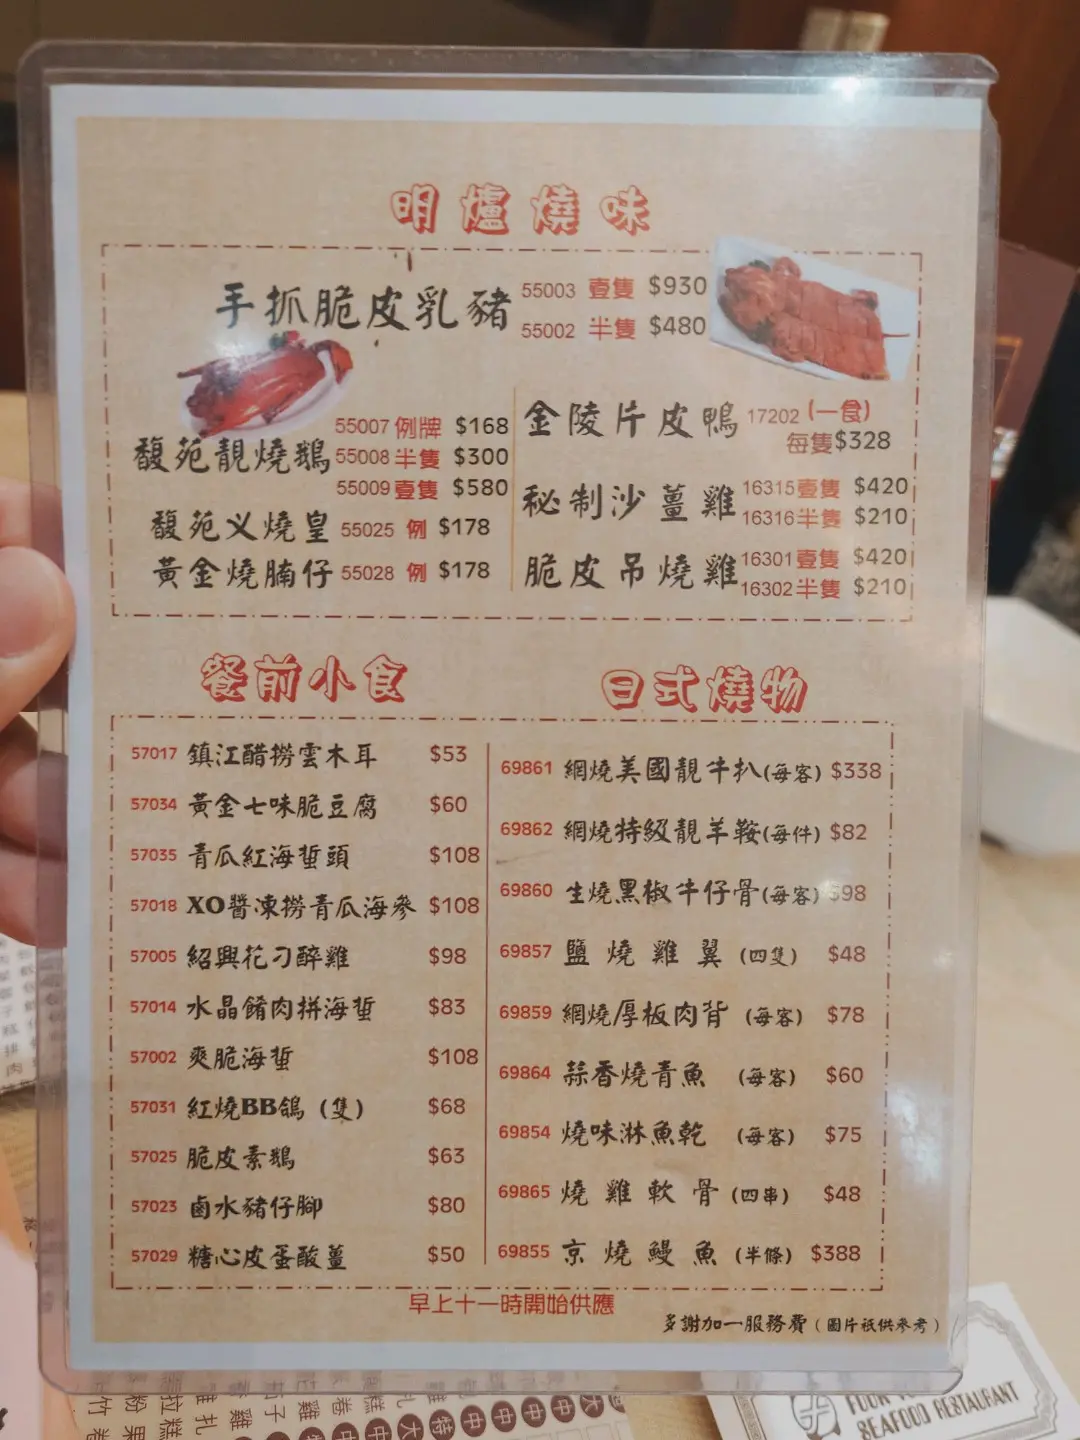 明爐燒味
手抓脆皮乳豬 55003 壹隻 $930
55002 半隻 $480
馥苑靚燒鵝 55007 例牌 $168
55008 半隻 $300
55009 壹隻 $580
馥苑义燒皇 55025 例 $178
黃金燒腩仔 55028 例 $178
金陵片皮鴨 17202 (一食)
每隻 $328
秘制沙薑雞 16315 壹隻 $420
16316 半隻 $210
脆皮吊燒雞 16301 壹隻 $420
16302 半隻 $210
餐前小食
57017 鎮江醋撈雲木耳 $53
57034 黃金七味脆豆腐 $60
57035 青瓜紅海蜇頭 $108
57018 XO醬凍撈青瓜海參 $108
57005 紹興花刁醉雞 $98
57014 水晶餚肉拼海蜇 $83
57002 爽脆海蜇 $108
57031 紅燒BB鴿 (隻) $68
57025 脆皮素鵝 $63
57023 鹵水豬仔腳 $80
57029 糖心皮蛋酸薑 $50
日式燒物
69861 網燒美國靚牛扒(每客) $338
69862 網燒特級靚羊鞍(每件) $82
69860 生燒黑椒牛仔骨(每客) $98
69857 鹽燒雞翼 (四隻) $48
69859 網燒厚板肉背 (每客) $78
69864 蒜香燒青魚 (每客) $60
69854 燒味淋魚乾 (每客) $75
69865 燒雞軟骨 (四串) $48
69855 京燒鰻魚 (半條) $388
早上十一時開始供應
多謝加一服務費 (圖片祇供參考)
SEAFOOD RESTAURANT